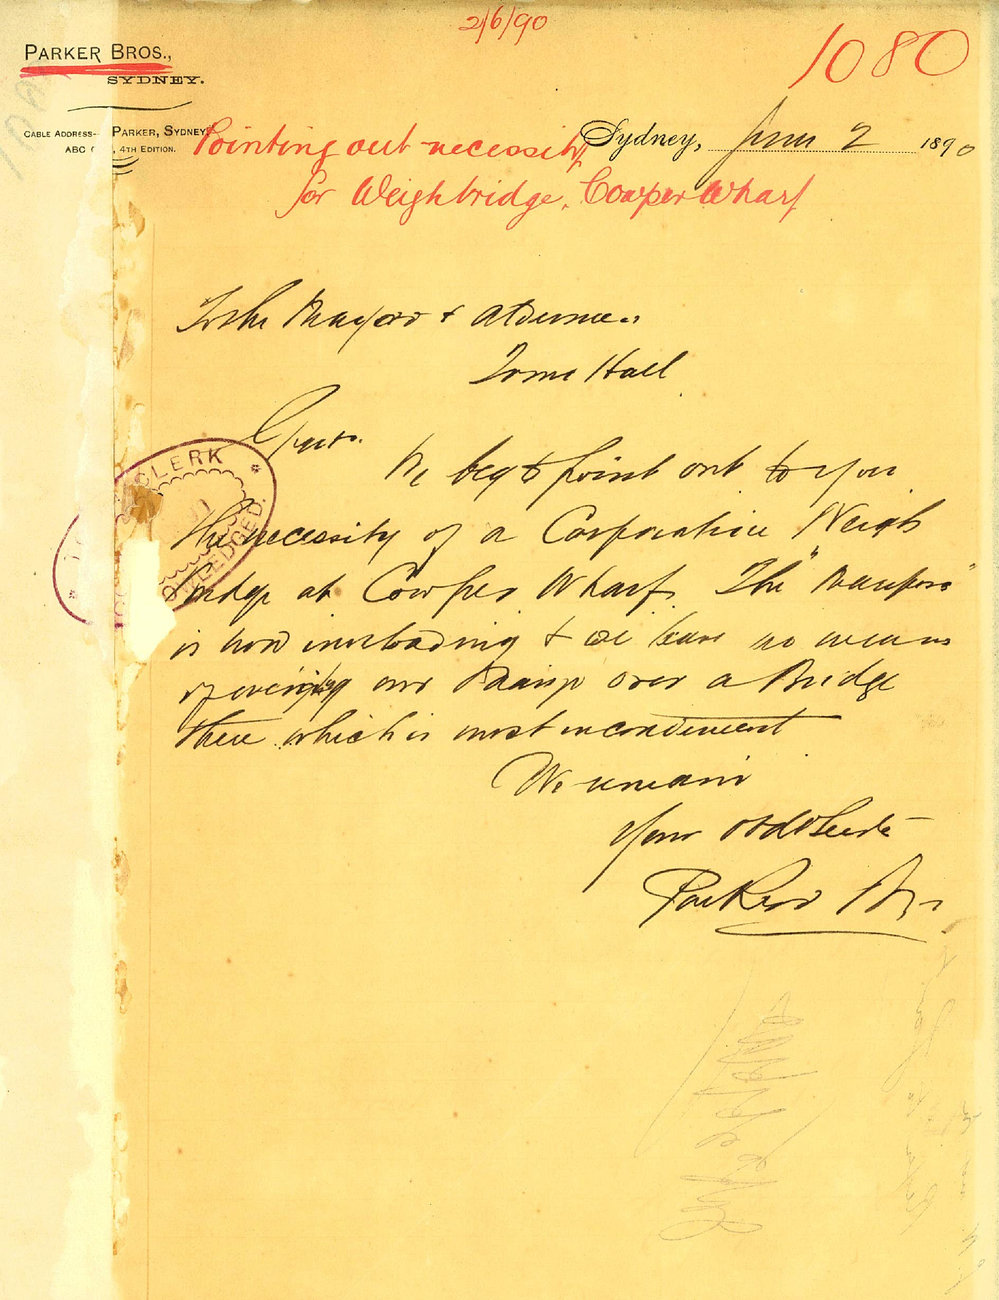 2/6/90
1080
PARKER BROS.,
SYDNEY.
CABLE ADDRESS-- PARKER, SYDNEY
ABC 4TH EDITION.
Sydney, June 2 1890
Pointing out necessity
for Weighbridge, Cowper Wharf
To the Mayor & Aldermen
Town Hall
Gents.
We beg to point out to you
the necessity of a Corporation Weigh
bridge at Cowper Wharf. The
is now unloading & we have no means
of our over a Bridge
there which is most inconvenient
We remain
Your Obdt Servts
Parker Bros
CLERK